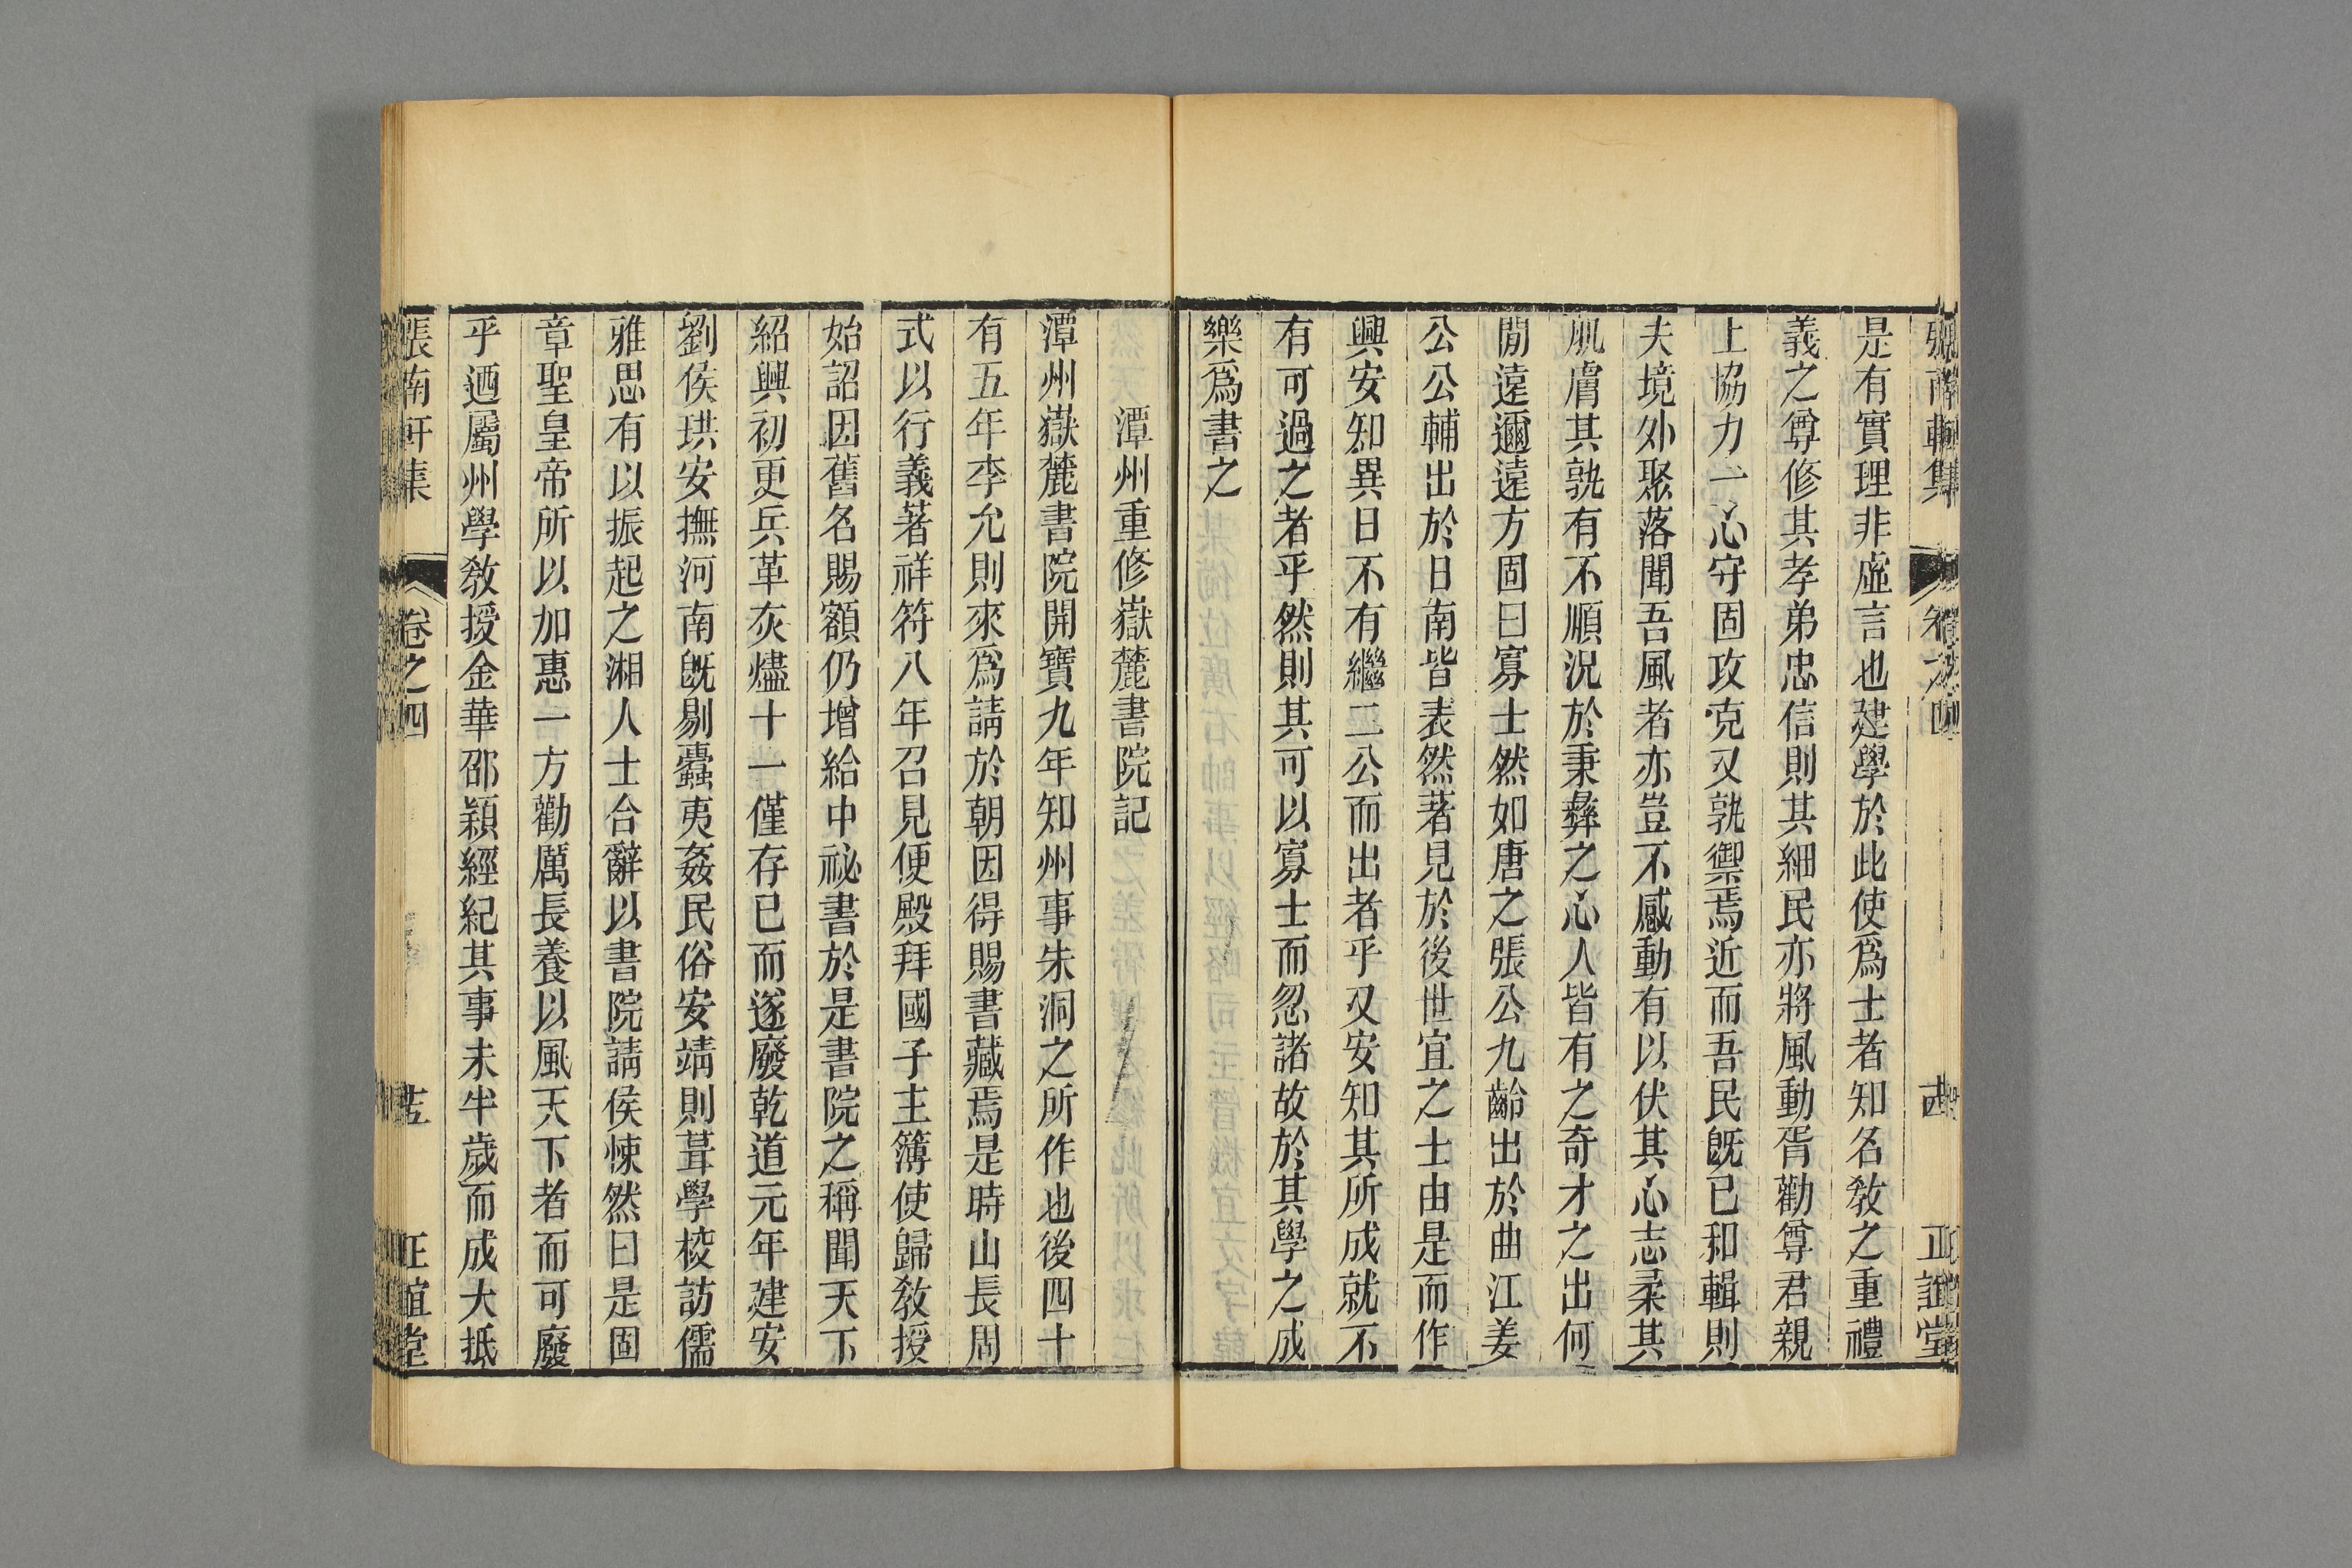 張南軒集
卷之四
正誼堂
是有實理非虛言也建學於此使爲士者知名敎之重禮
義之尊修其孝弟忠信則其細民亦將風動胥勸尊君親
上協力一心守固攻克又孰禦焉近而吾民旣已和輯則
夫境外聚落聞吾風者亦豈不感動有以伏其心志柔其
肌膚其孰有不順況於秉彝之心人皆有之奇才之出何
閒遠邇遠方固曰寡士然如唐之張公九齡出於曲江姜
公公輔出於日南皆表然著見於後世宜之士由是而作
興安知異日不有繼二公而出者乎又安知其所成就不
有可過之者乎然則其可以寡士而忽諸故於其學之成
樂爲書之
潭州重修嶽麓書院記
潭州嶽麓書院開寶九年知州事朱洞之所作也後四十
有五年李允則來爲請於朝因得賜書藏焉是時山長周
式以行義著祥符八年召見便殿拜國子主簿使歸敎授
始詔因舊名賜額仍增給中祕書於是書院之稱聞天下
紹興初更兵革灰燼十一僅存已而遂廢乾道元年建安
劉侯珙安撫河南旣剔蠹夷姦民俗安靖則葺學校訪儒
雅思有以振起之湘人士合辭以書院請侯悚然曰是固
章聖皇帝所以加惠一方勸厲長養以風天下者而可廢
乎迺屬州學敎授金華邵穎經紀其事未半歲而成大抵
張南軒集
卷之四
正誼堂